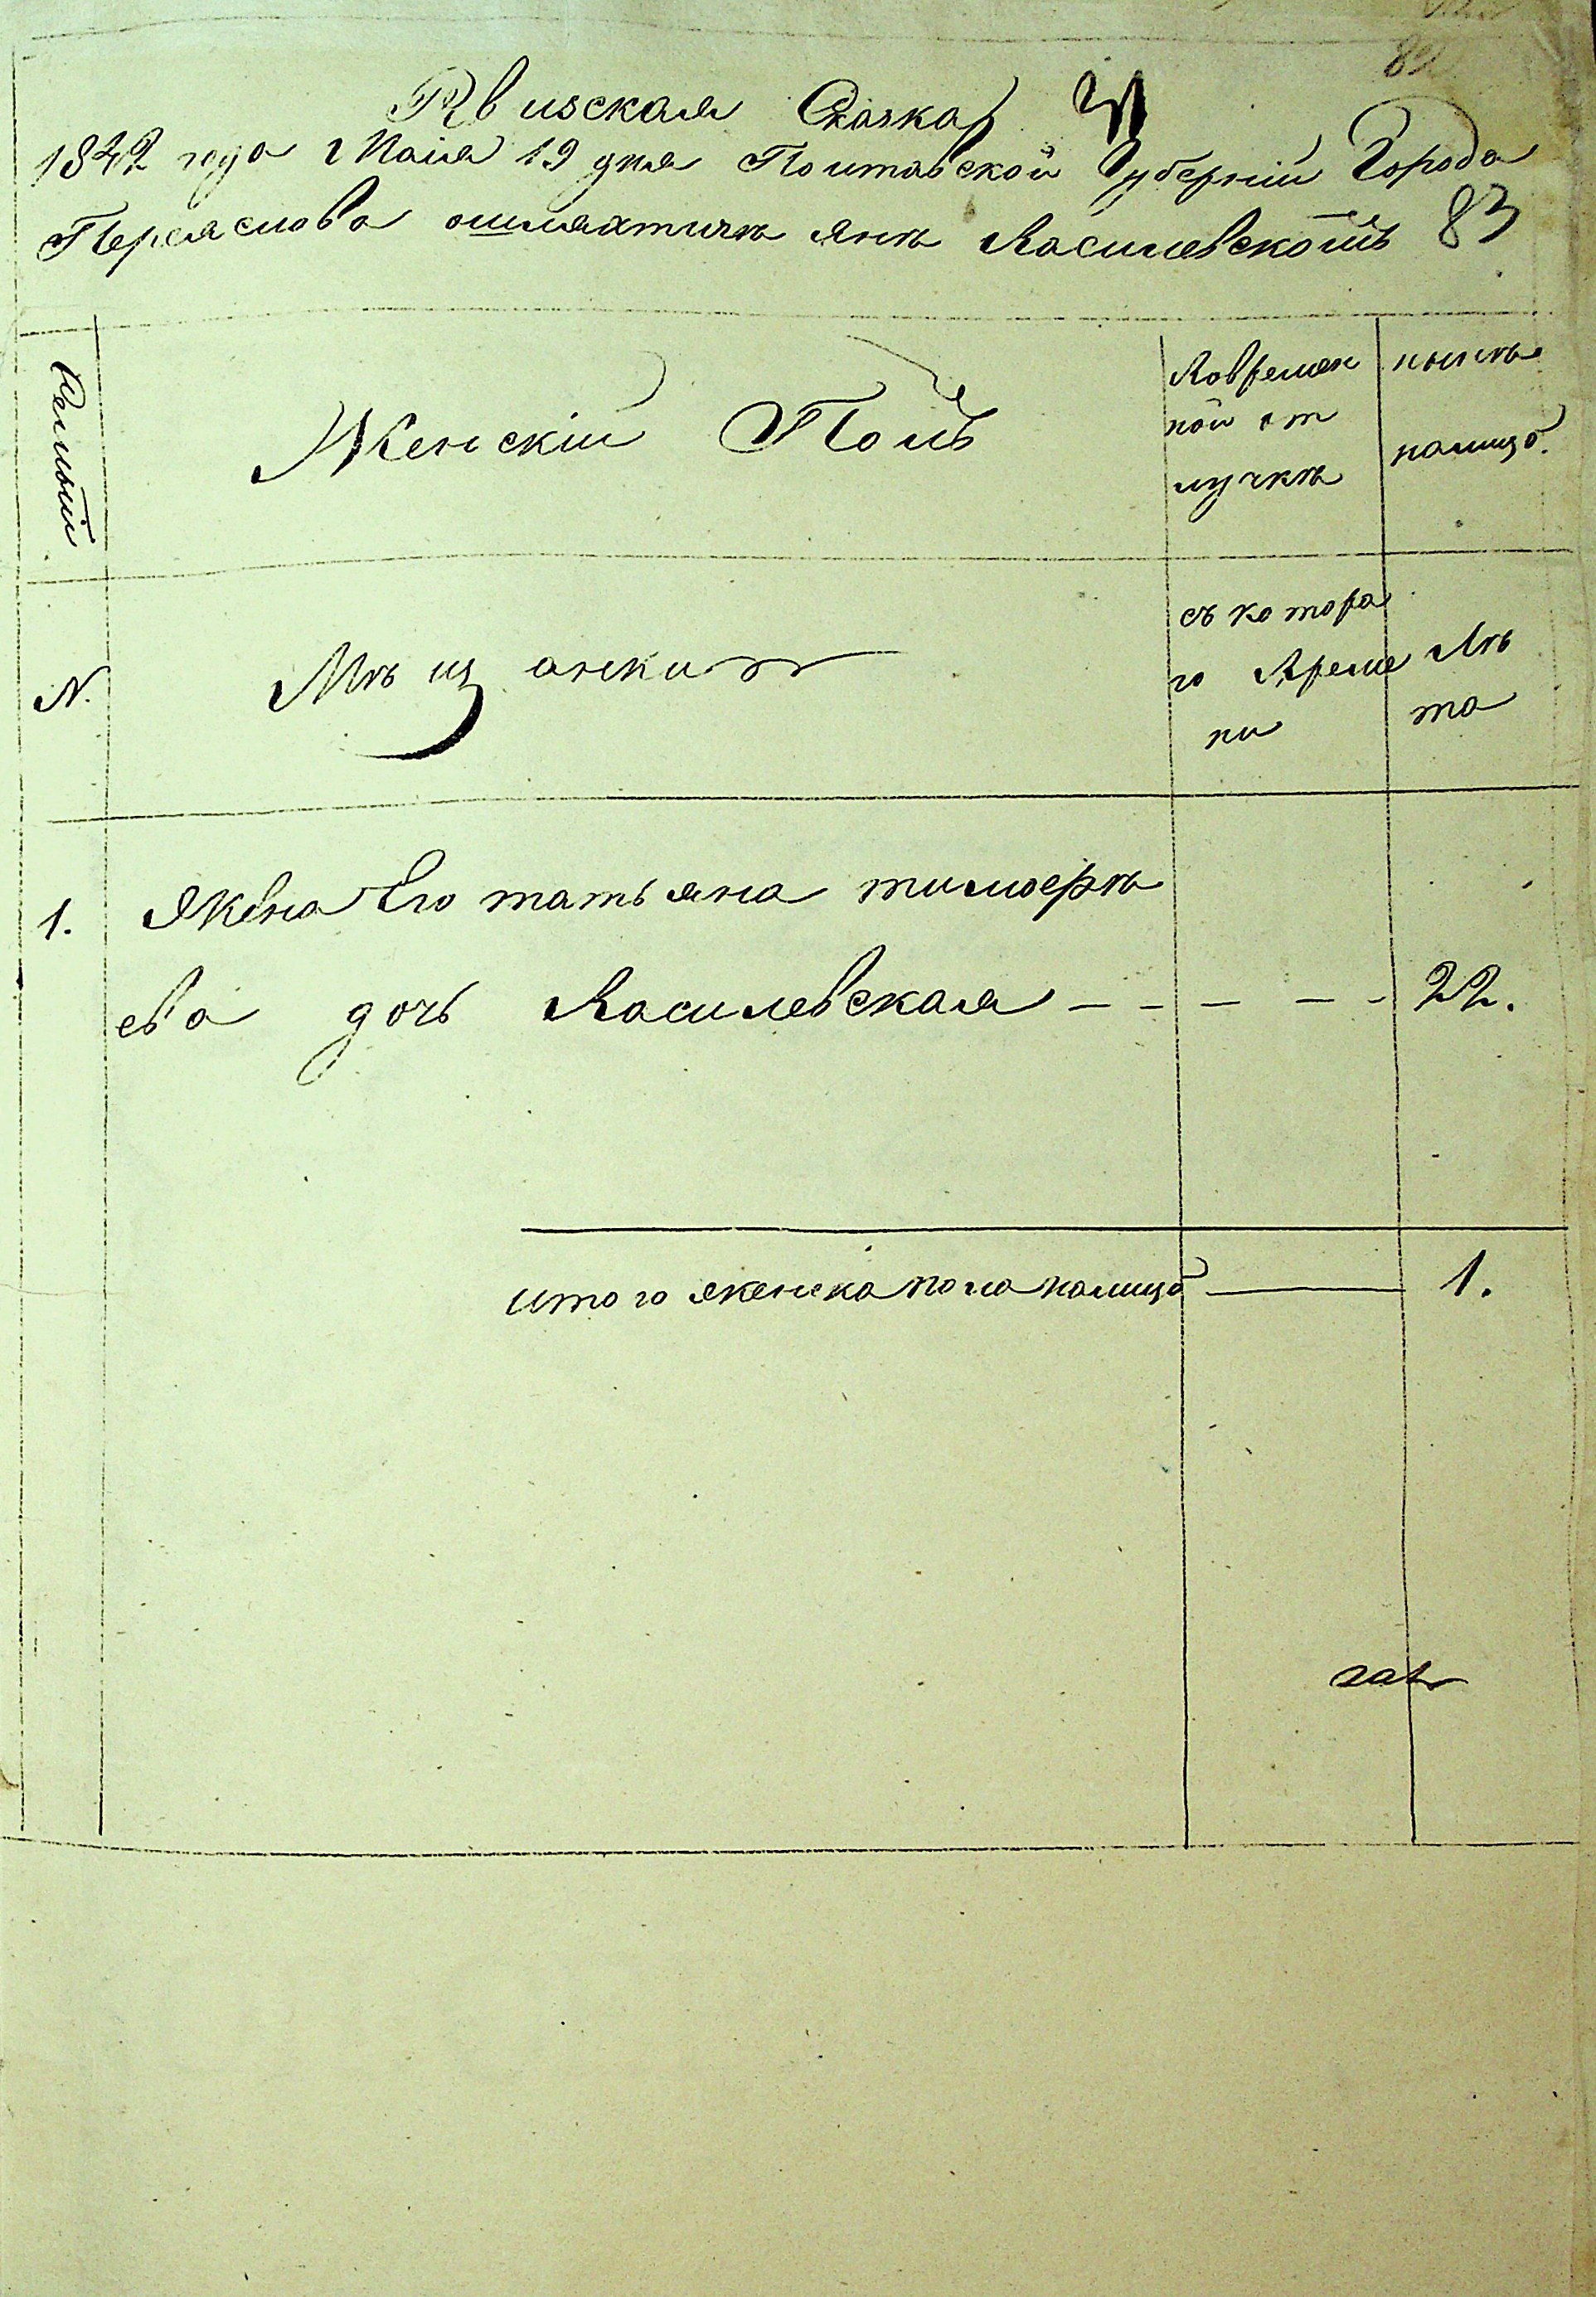 82
Рвизская Сказка
1842 года Маія 19 дня Полтавской Губерніи Города
Переяслова ошляхтичѣ янѣ Василевскомъ 83
Женскій Полъ
Вовремен
ной от
лучкѣ
нынѣ
налицо.
N.
Мѣщанки
съ котора
го Време
ни
Лѣ
та
1. Жена Его татьяна тимоѳѣ
ева дочь Василевская - - - - - 22.
итого женска пола налицо — 1.